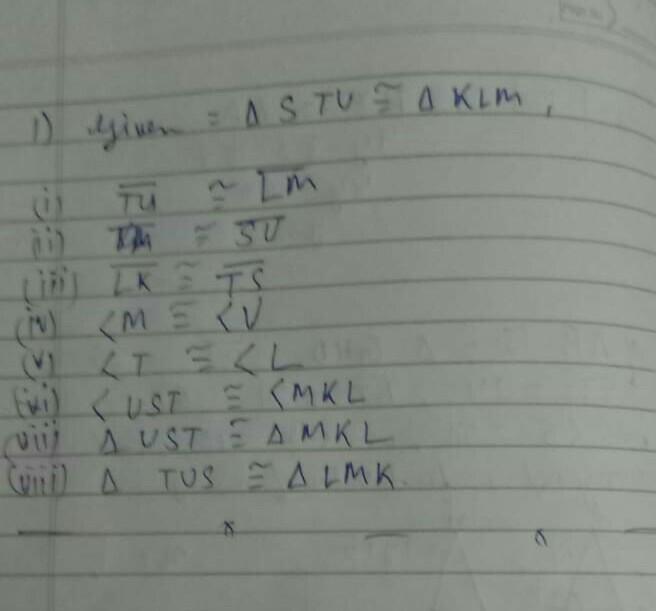 1) Given = Δ STU ≅ Δ KLM,
(i) T̅U̅ ≅ L̅M̅
(ii) K̅M̅ ≅ S̅U̅
(iii) L̅K̅ ≅ T̅S̅
(iv) <M ≅ <U
(v) <T ≅ <L
(vi) <UST ≅ <MKL
(vii) Δ UST ≅ Δ MKL
(viii) Δ TUS ≅ Δ LMK.
x x